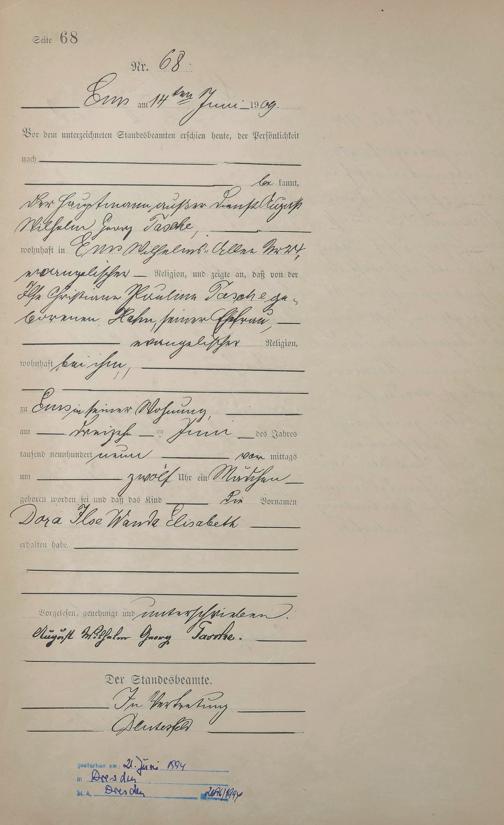 Seite 68
Nr. 68
Ems am 14ten Juni 1909.
Vor dem unterzeichneten Standesbeamten erschien heute, der Persönlichkeit
nach
be kannt,
der Hauptmann außer Dienst August
Wilhelm Georg Tasche,
wohnhaft in Ems Wilhelms-Allee Nr
evangelischer Religion, und zeigte an, daß von der
Ilse Christiane Pauline Tasche ge-
borenen Hahn, seiner Ehefrau,
evangelischer Religion,
wohnhaft bei ihm,
zu Ems in seiner Wohnung,
am dreizehn Juni des Jahres
tausend neunhundert neun vor mittags
um zwölf Uhr ein Mädchen
geboren worden sei und daß das Kind die Vornamen
Dora Ilse Wanda Elisabeth
erhalten habe.
Vorgelesen, genehmigt und unterschrieben.
August Wilhelm Georg Tasche.
Der Standesbeamte.
In Vertretung
gestorben am 21. Juni 1994
in Dresden
St.A. Dresden